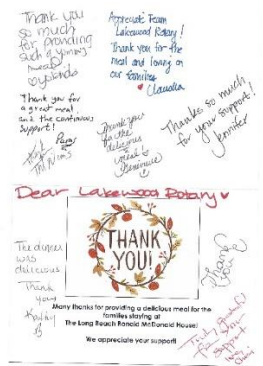 Thank you
so much
for providing
such a yummy
meal
Yolanda
Appreciate Team
Lakewood Rotary!
Thank you for the
meal and loving on
our families
Claudia
Thank you for
a great meal
and the continuous
support!
Thank you
for the
delicious
meal &
Thanks so much
for your support!
Jennifer
Dear Lakewood Rotary
THANK
YOU!
The dinner
was
delicious
Thank
you
Kathy
B
Thank
you
Many thanks for providing a delicious meal for the
families staying at
The Long Beach Ronald McDonald House!
We appreciate your support!